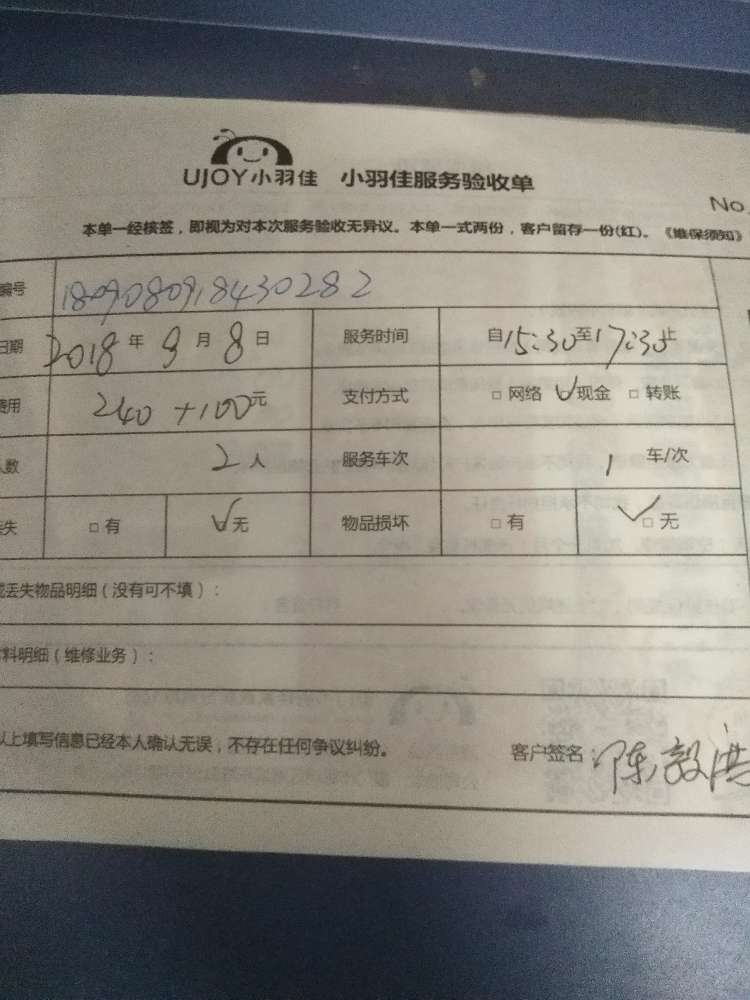 UJOY小羽佳 小羽佳服务验收单
No.
本单一经核签，即视为对本次服务验收无异议。本单一式两份，客户留存一份(红)。《维保须知》
编号 1809080918430282
日期 2018年9月8日 服务时间 自15:30至17:30止
费用 240+100元 支付方式 □网络 ☑现金 □转账
人数 2人 服务车次 1车/次
丢失 □有 ☑无 物品损坏 □有 ☑无
或丢失物品明细（没有可不填）：
材料明细（维修业务）：
以上填写信息已经本人确认无误，不存在任何争议纠纷。 客户签名：陈毅洪